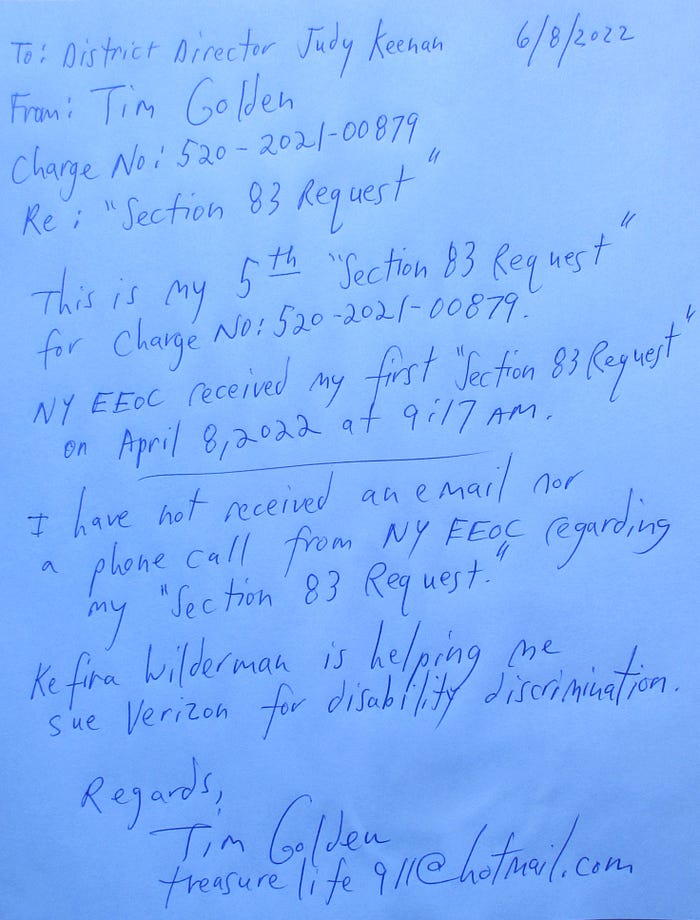 To: District Director Judy Keenan 6/8/2022
From: Tim Golden
Charge No: 520-2021-00879
Re: "Section 83 Request"
This is my 5th "Section 83 Request"
for Charge No: 520-2021-00879.
NY EEOC received my first "Section 83 Request"
on April 8, 2022 at 9:17 AM.
I have not received an email nor
a phone call from NY EEOC regarding
my "Section 83 Request."
Kefira Wilderman is helping me
sue Verizon for disability discrimination.
Regards,
Tim Golden
treasure life 911@hotmail.com